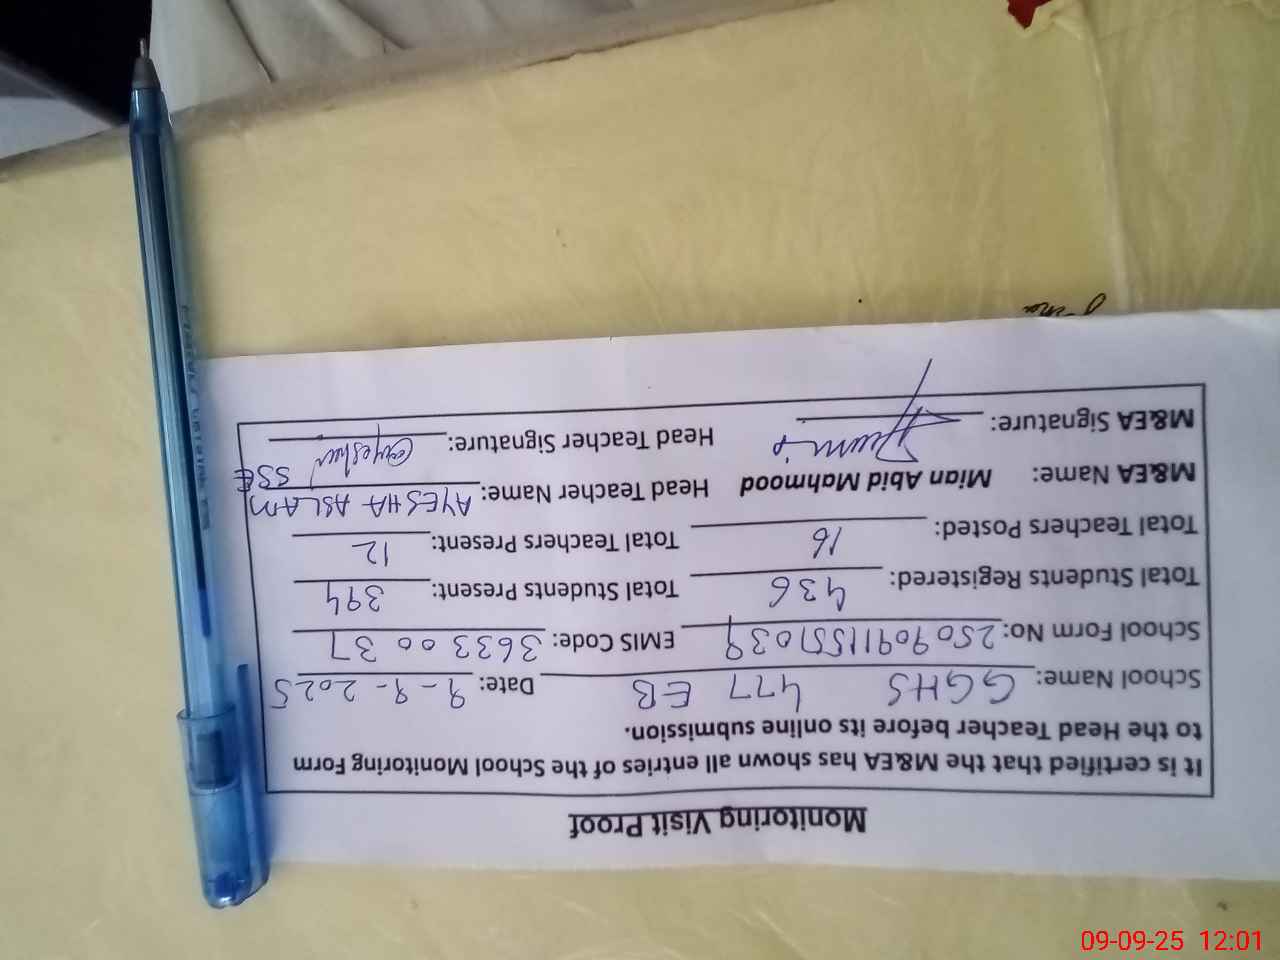 Monitoring Visit Proof
It is certified that the M&EA has shown all entries of the School Monitoring Form
to the Head Teacher before its online submission.
School Name: GGHS 477 EB Date: 9-9-2025
School Form No: 25090911557039 EMIS Code: 36330037
Total Students Registered: 436 Total Students Present: 394
Total Teachers Posted: 16 Total Teachers Present: 12
M&EA Name: Mian Abid Mahmood Head Teacher Name: AYESHA ASLAM
SSE
M&EA Signature: Head Teacher Signature: Ayesha
09-09-25 12:01